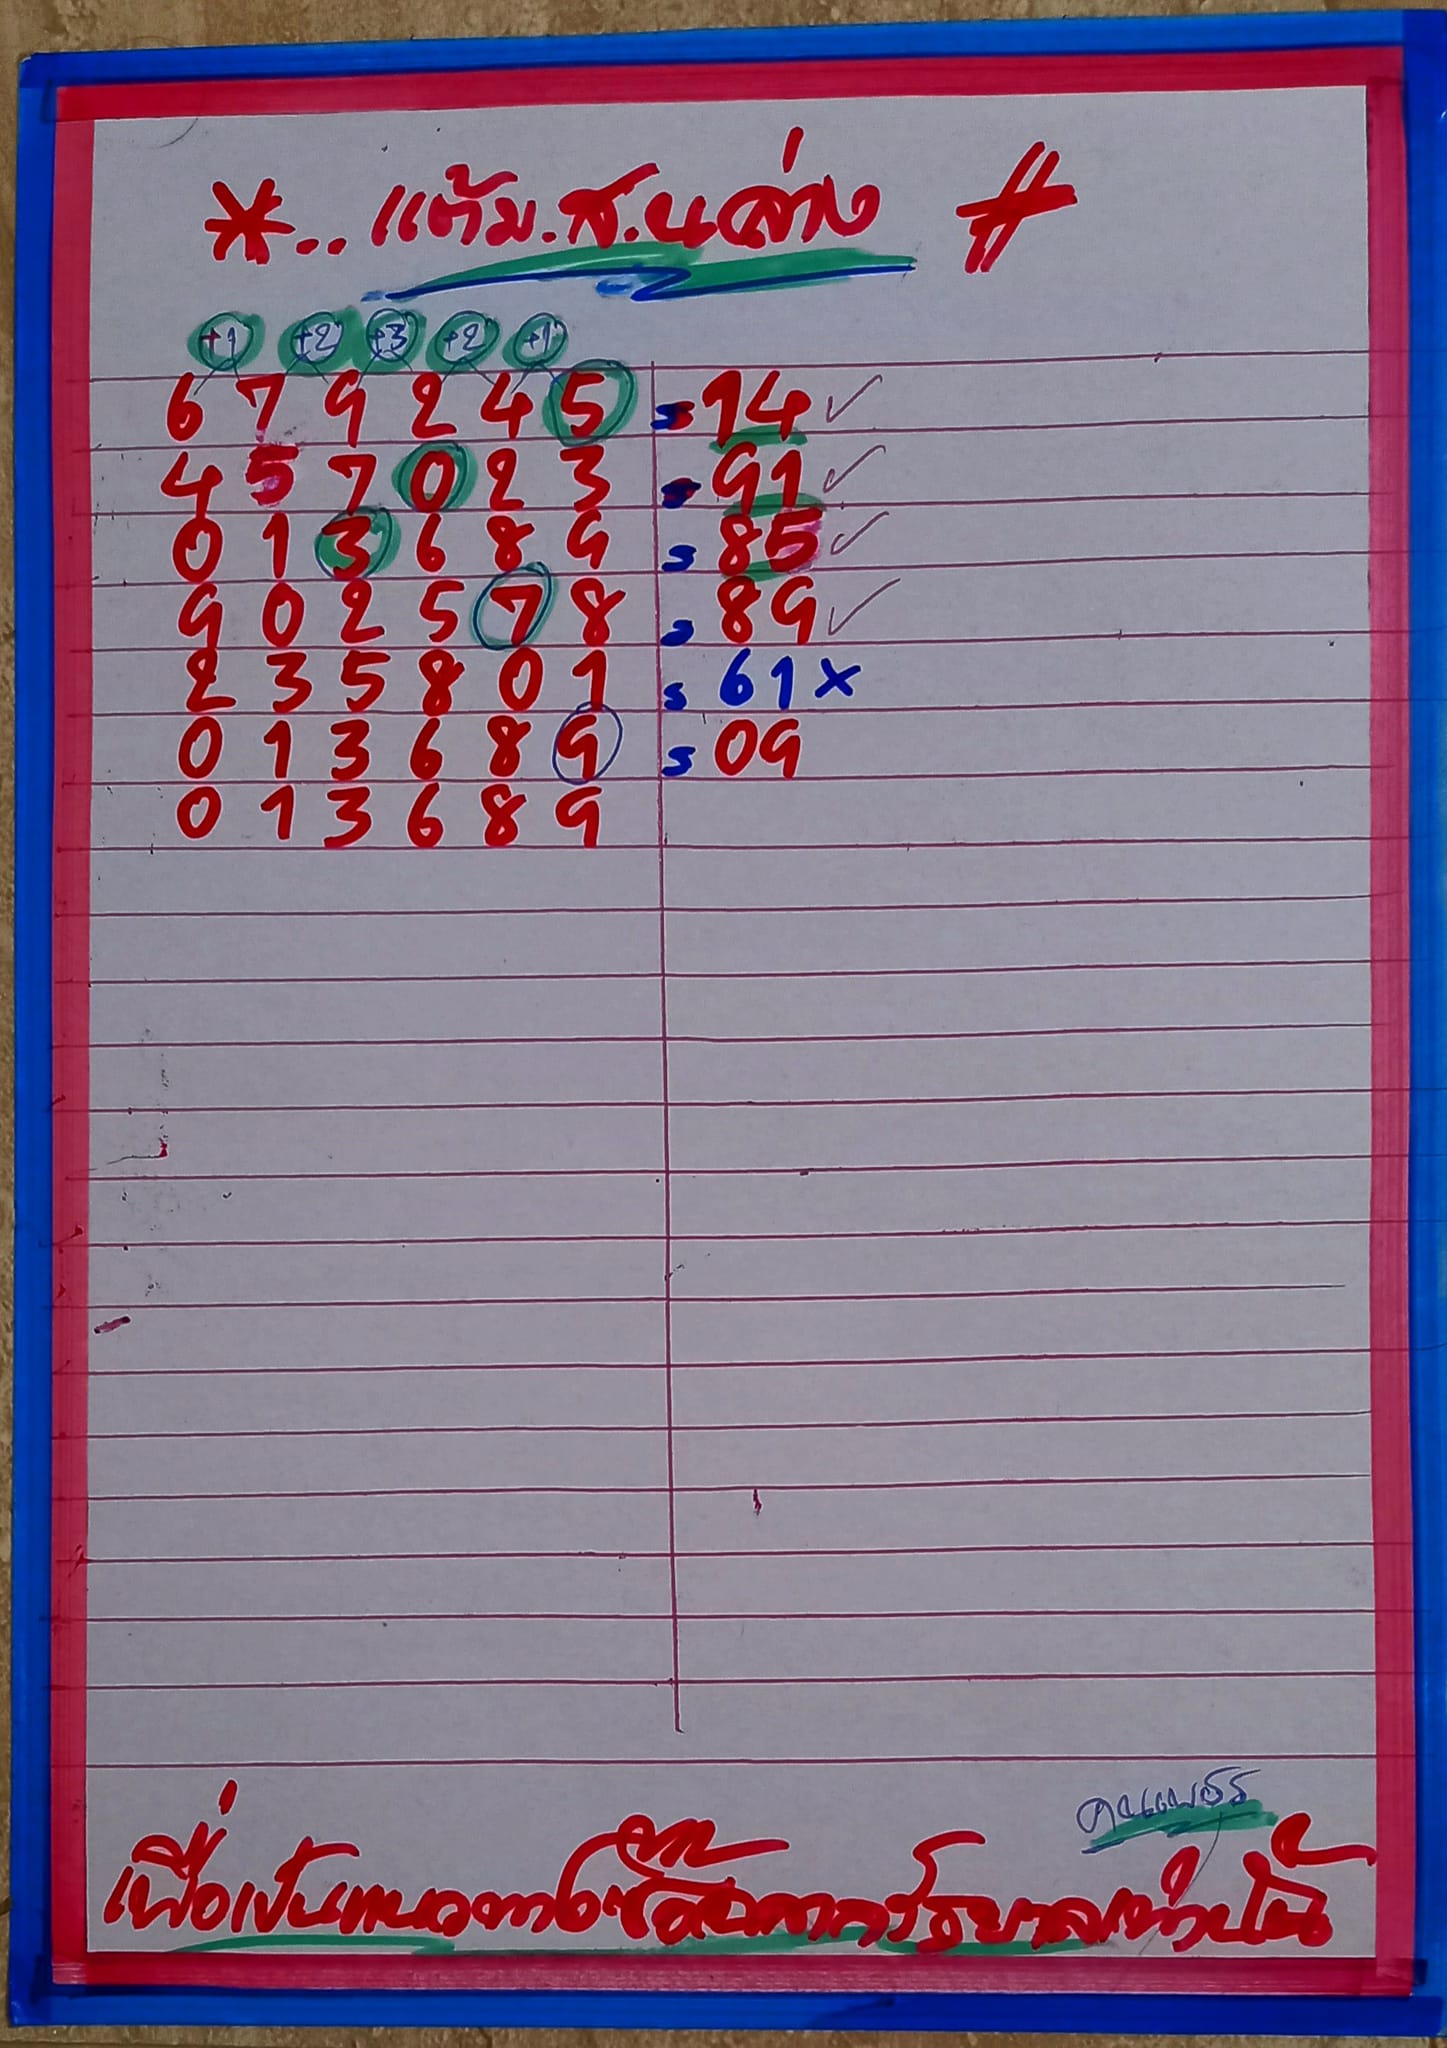 *.. แต้ม.ส.บนล่าง #
+1 +2 +3 +2 +1
6 7 9 2 4 5 s 14 ✓
4 5 7 0 2 3 s 91 ✓
0 1 3 6 8 9 s 85 ✓
9 0 2 5 7 8 s 89 ✓
2 3 5 8 0 1 s 61 ×
0 1 3 6 8 9 s 09
0 1 3 6 8 9
เพื่อเป็นแนวทางซื้อสลากรัฐบาลเท่านั้น